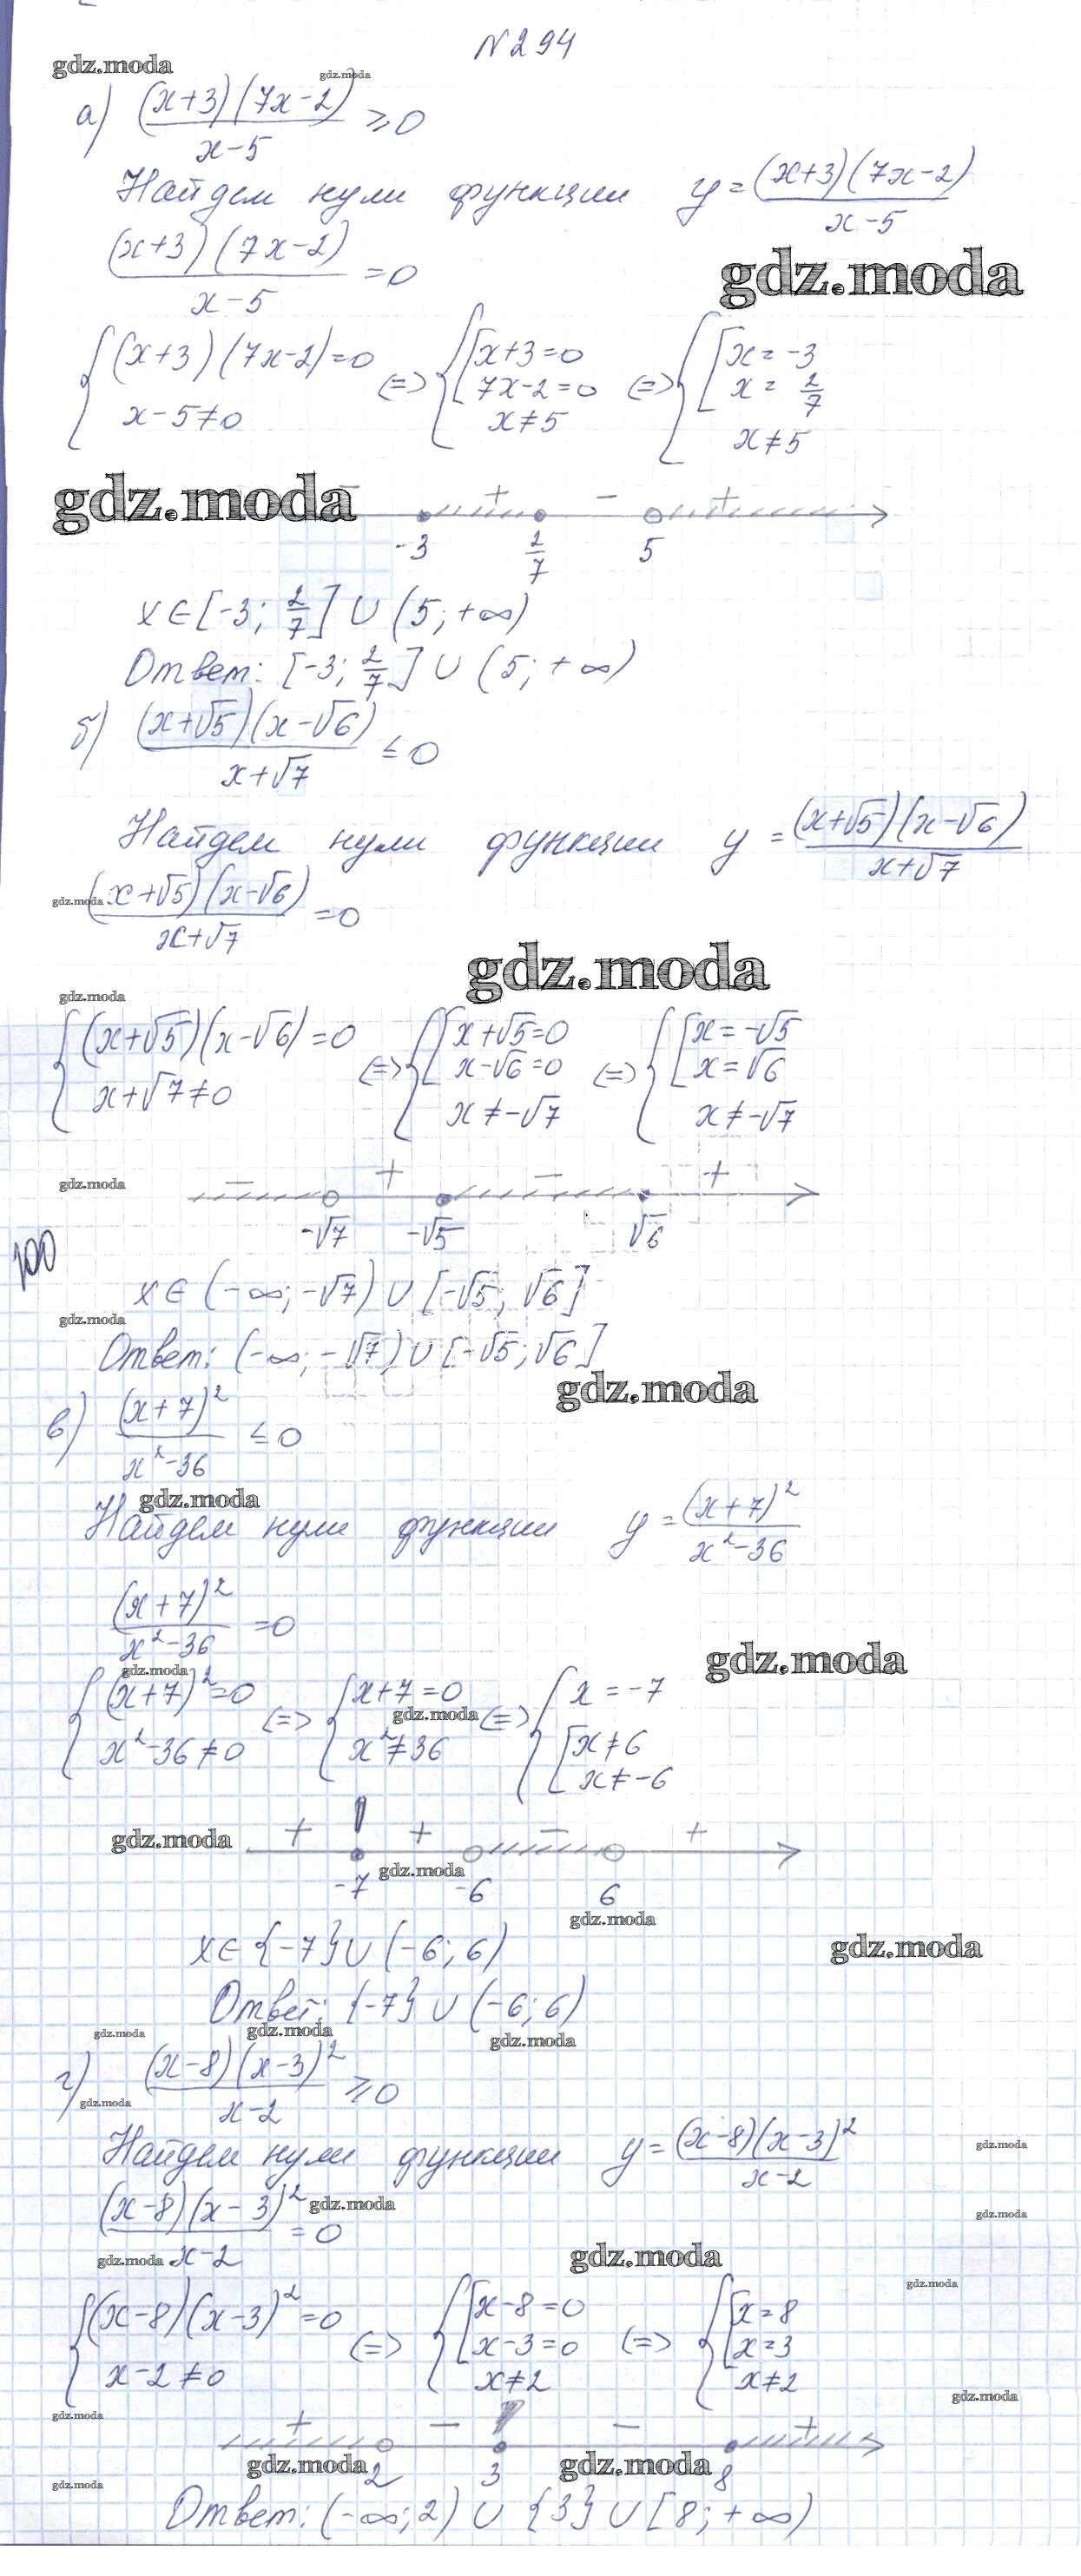 N 294
gdz.moda
gdz.moda
а) (x+3)(7x-2)/x-5 ≥ 0
Найдем нули функции y = (x+3)(7x-2)/x-5
(x+3)(7x-2)/x-5 = 0
gdz.moda
{(x+3)(7x-2)=0 x-5≠0 <=> {[x+3=0 7x-2=0 x≠5 <=> {[x=-3 x=2/7 x≠5
gdz.moda
- + - +
-3 2/7 5
x∈[-3; 2/7] ∪ (5; +∞)
Ответ: [-3; 2/7] ∪ (5; +∞)
б) (x+√5)(x-√6)/x+√7 ≤ 0
Найдем нули функции y = (x+√5)(x-√6)/x+√7
gdz.moda
(x+√5)(x-√6)/x+√7 = 0
gdz.moda
gdz.moda
{(x+√5)(x-√6)=0 x+√7≠0 <=> {[x+√5=0 x-√6=0 x≠-√7 <=> {[x=-√5 x=√6 x≠-√7
gdz.moda
- + - +
-√7 -√5 √6
100
x∈(-∞; -√7) ∪ [-√5; √6]
gdz.moda
Ответ: (-∞; -√7) ∪ [-√5; √6]
gdz.moda
в) (x+7)²/x²-36 ≤ 0
gdz.moda
Найдем нули функции y = (x+7)²/x²-36
(x+7)²/x²-36 = 0
gdz.moda
gdz.moda
{(x+7)²=0 x²-36≠0 <=> {x+7=0 x²≠36 <=> {x=-7 [x≠6 x≠-6
gdz.moda
gdz.moda
+ + - +
gdz.moda
-7 -6 6
gdz.moda
x∈{-7} ∪ (-6; 6)
gdz.moda
Ответ: {-7} ∪ (-6; 6)
gdz.moda
gdz.moda
gdz.moda
г) (x-8)(x-3)²/x-2 ≥ 0
gdz.moda
Найдем нули функции y = (x-8)(x-3)²/x-2
gdz.moda
(x-8)(x-3)²/x-2 = 0
gdz.moda
gdz.moda
gdz.moda
gdz.moda
gdz.moda
{(x-8)(x-3)²=0 x-2≠0 <=> {[x-8=0 x-3=0 x≠2 <=> {[x=8 x=3 x≠2
gdz.moda
gdz.moda
+ - - +
gdz.moda
gdz.moda
2 3 8
gdz.moda
Ответ: (-∞; 2) ∪ {3} ∪ [8; +∞)